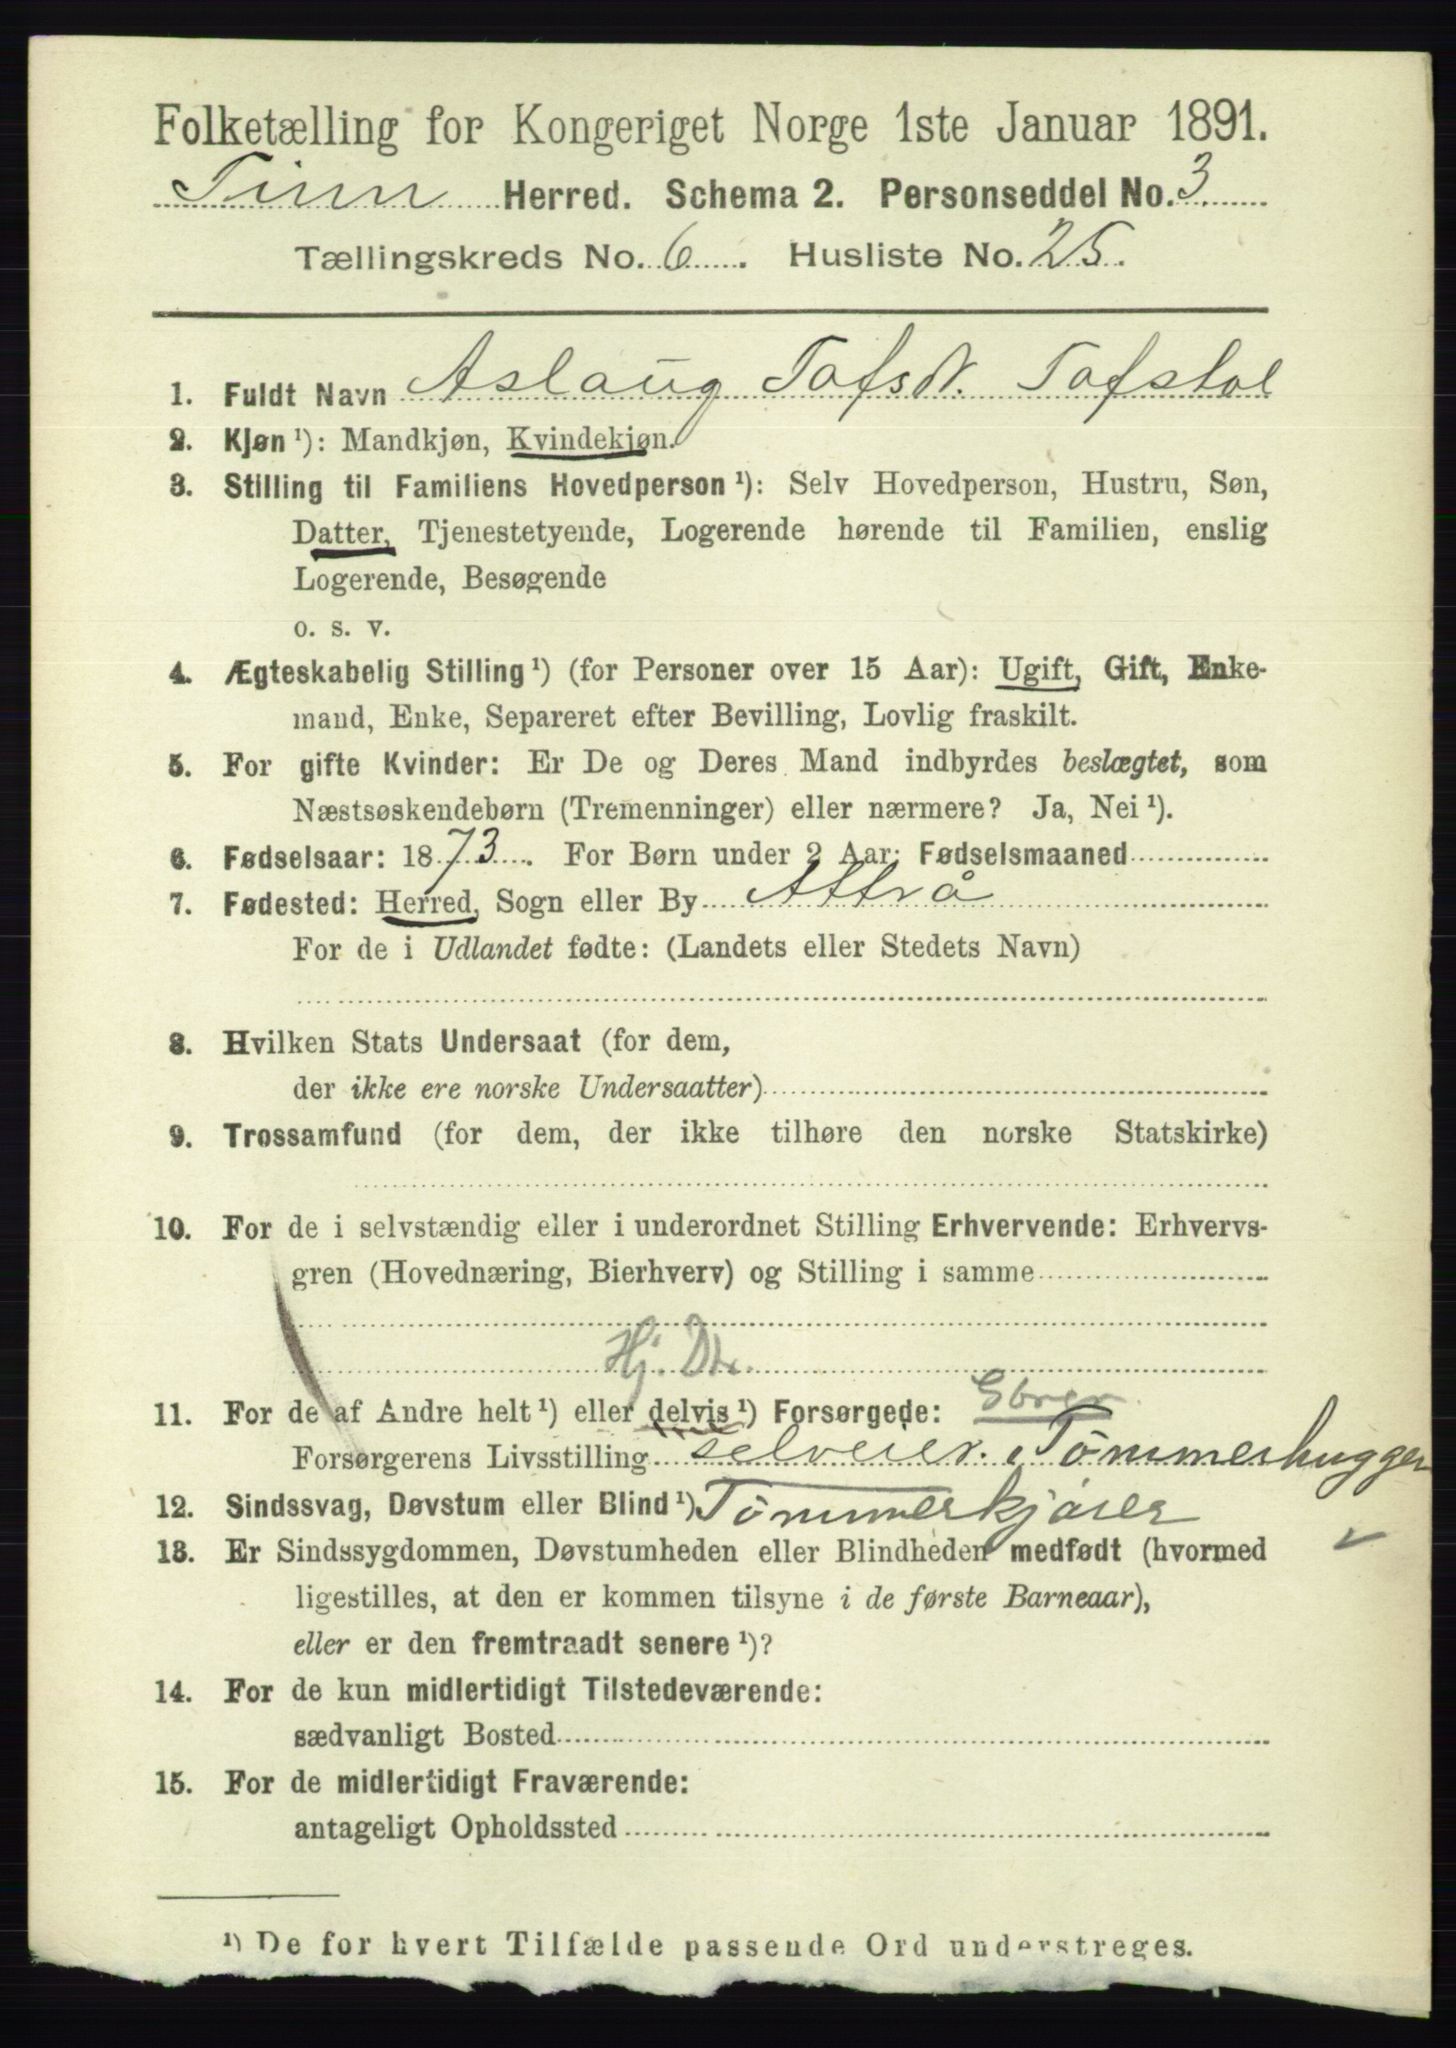 Folketælling for Kongeriget Norge 1ste Januar 1891.
Tinn Herred. Schema 2. Personseddel No. 3.
Tællingskreds No. 6. Husliste No. 25.
1. Fuldt Navn Aslaug Tofsd. Tofstol
2. Kjøn ¹): Mandkjøn, Kvindekjøn.
3. Stilling til Familiens Hovedperson ¹): Selv Hovedperson, Hustru, Søn,
Datter, Tjenestetyende, Logerende hørende til Familien, enslig
Logerende, Besøgende
o. s. v.
4. Ægteskabelig Stilling ¹) (for Personer over 15 Aar): Ugift, Gift, Enke-
mand, Enke, Separeret efter Bevilling, Lovlig fraskilt.
5. For gifte Kvinder: Er De og Deres Mand indbyrdes beslægtet, som
Næstsøskendebørn (Tremenninger) eller nærmere? Ja, Nei ¹).
6. Fødselsaar: 1873. For Børn under 2 Aar: Fødselsmaaned
7. Fødested: Herred, Sogn eller By Attrå
For de i Udlandet fødte: (Landets eller Stedets Navn)
8. Hvilken Stats Undersaat (for dem,
der ikke ere norske Undersaatter)
9. Trossamfund (for dem, der ikke tilhøre den norske Statskirke)
10. For de i selvstændig eller i underordnet Stilling Erhvervende: Erhvervs-
gren (Hovednæring, Bierhverv) og Stilling i samme
Hj. Dtr.
11. For de af Andre helt ¹) eller delvis ¹) Forsørgede: Gbrer
Forsørgerens Livsstilling selveier. Tømmerhugger
12. Sindssvag, Døvstum eller Blind ¹) Tømmerkjører
13. Er Sindssygdommen, Døvstumheden eller Blindheden medfødt (hvormed
ligestilles, at den er kommen tilsyne i de første Barneaar),
eller er den fremtraadt senere ¹)?
14. For de kun midlertidigt Tilstedeværende:
sædvanligt Bosted
15. For de midlertidigt Fraværende:
antageligt Opholdssted
¹) De for hvert Tilfælde passende Ord understreges.